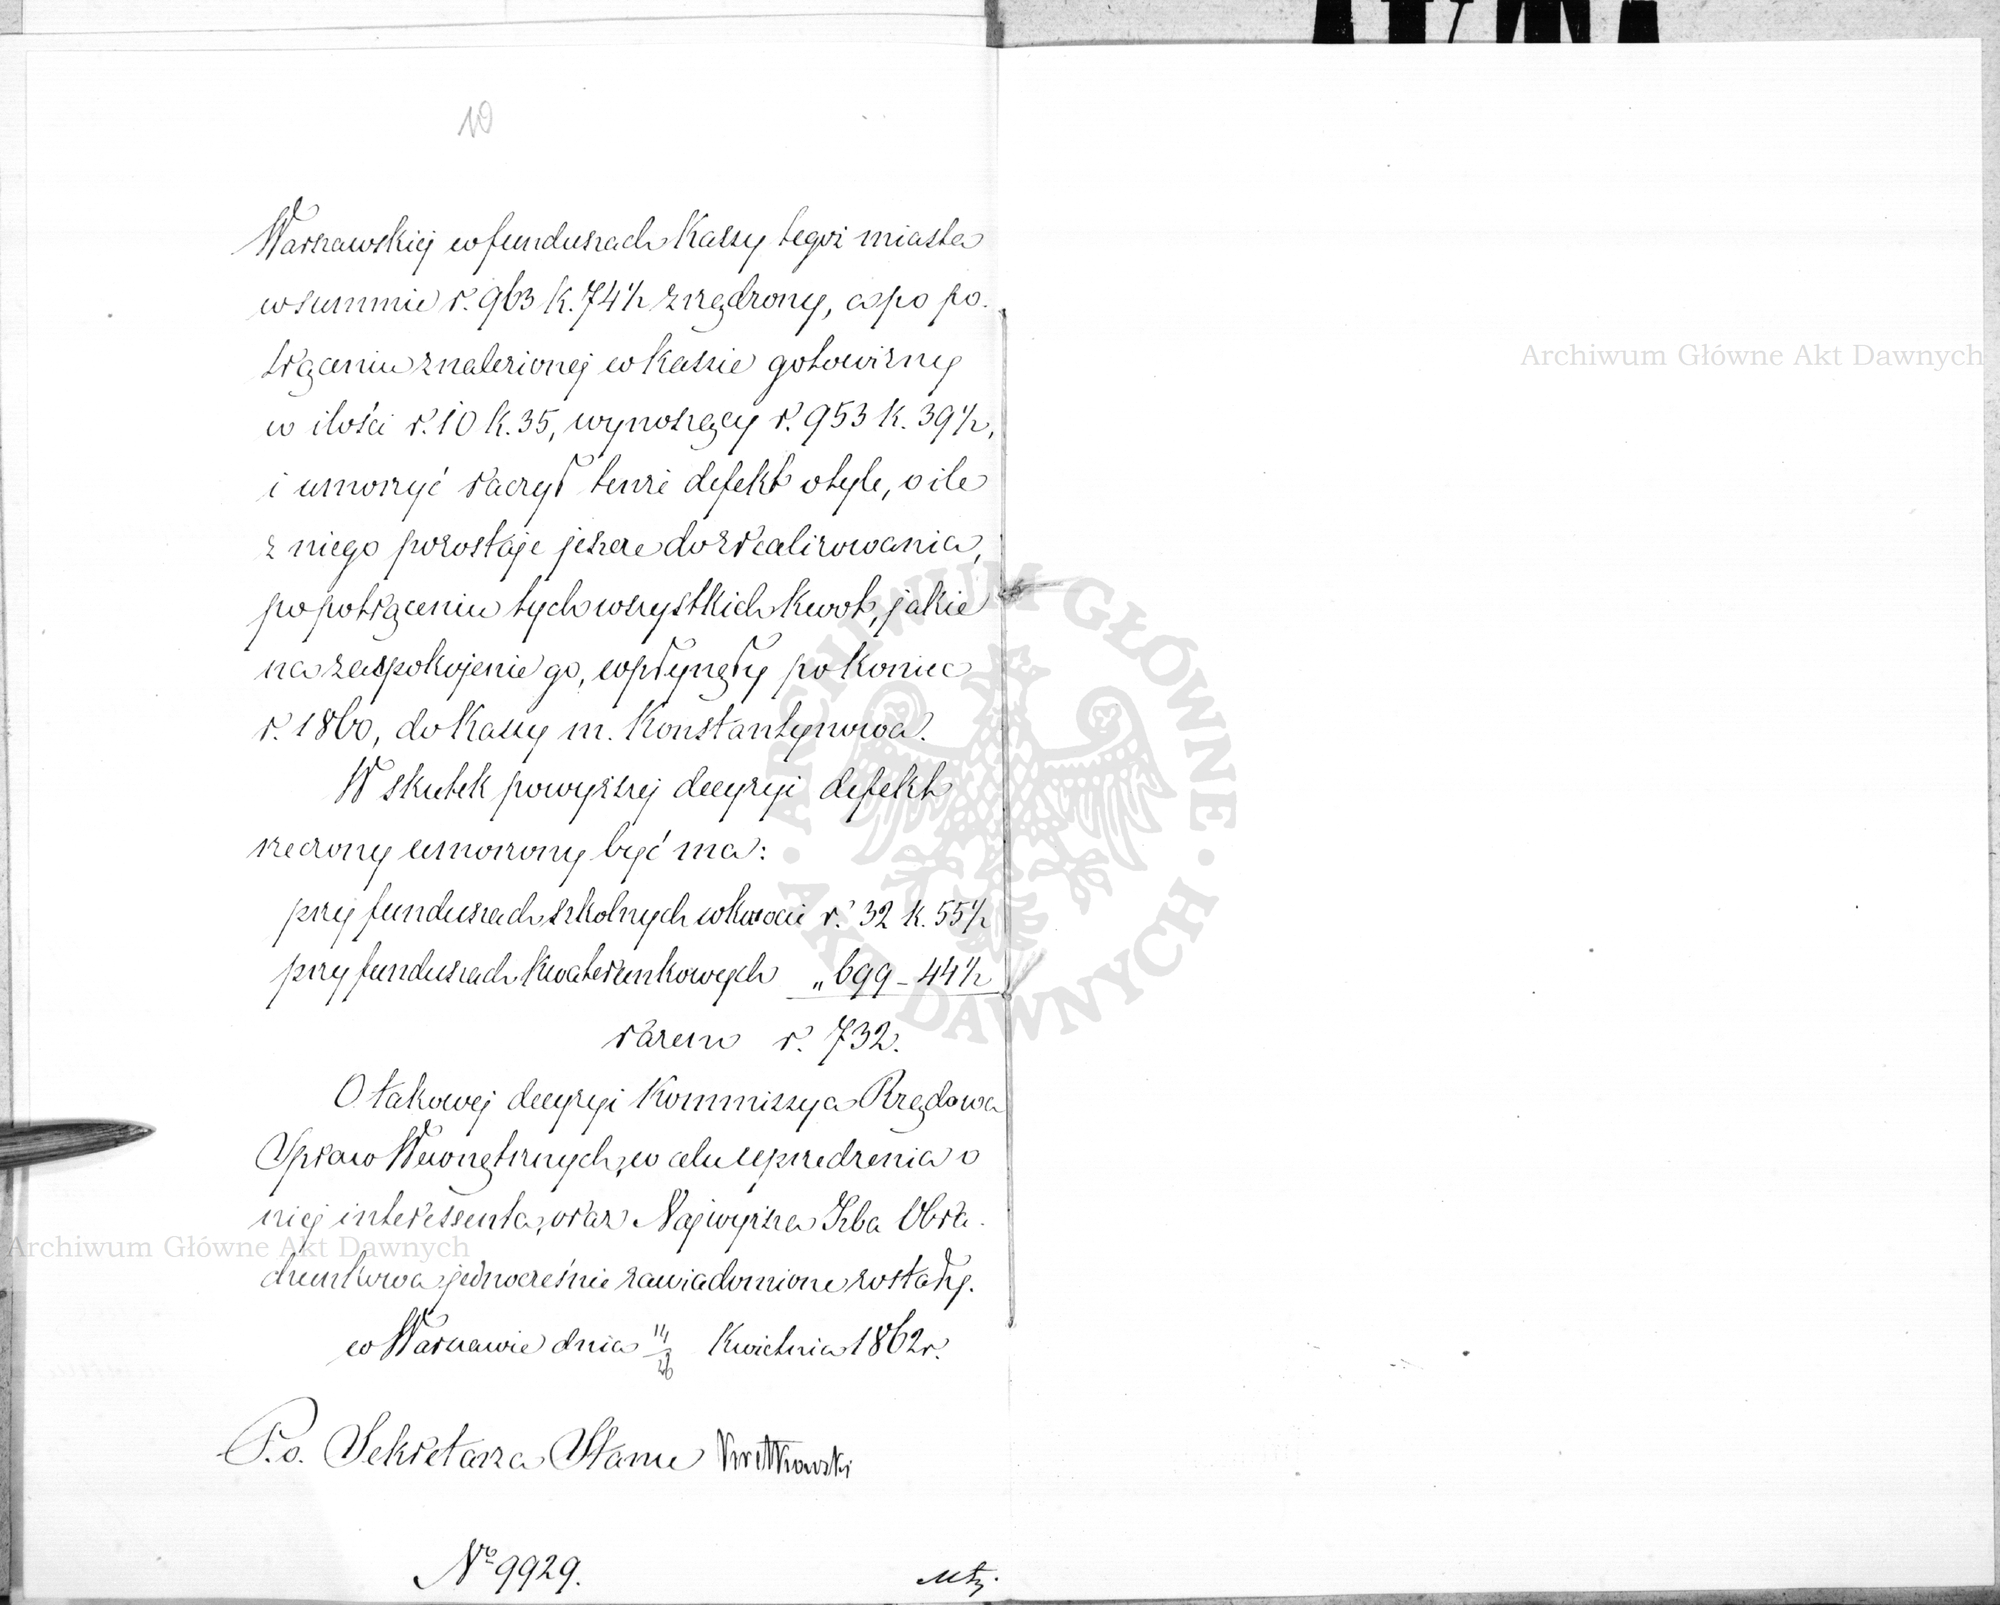 10
Warszawskiej w funduszach Kassy tegoż miasta
w summie r. 963 k. 74½ zrządzony, a po po-
trąceniu znalezionej w kassie gotowizny
w ilości r. 10 k. 35, wynoszący r. 953 k. 39½,
i umorzyć raczył tenże defekt o tyle, o ile
z niego pozostaje jeszcze do zrealizowania,
po potrąceniu tych wszystkich kwot, jakie
na zaspokojenie go, wpłynęły po koniec
r. 1860, do Kassy m. Konstantynowa.
W skutek powyższej decyzyi defekt
rzeczony umorzony być ma:
przy funduszach szkolnych w kwocie r. 32 k. 55½
przy funduszach kwaterunkowych „ 699 – 44½
razem r. 732.
O takowej decyzyi Kommissya Rządowa
Spraw Wewnętrznych, w celu uprzedzenia o
niej interessenta, oraz Najwyższa Izba Obra-
chunkowa jednocześnie zawiadomione zostały.
w Warszawie dnia 14/26 Kwietnia 1862 r.
P. o. Sekretarza Stanu Kretkowski
No 9929.
Archiwum Główne Akt Dawnych
Archiwum Główne Akt Dawnych
ARCHIWUM GŁÓWNE · AKT DAWNYCH ·